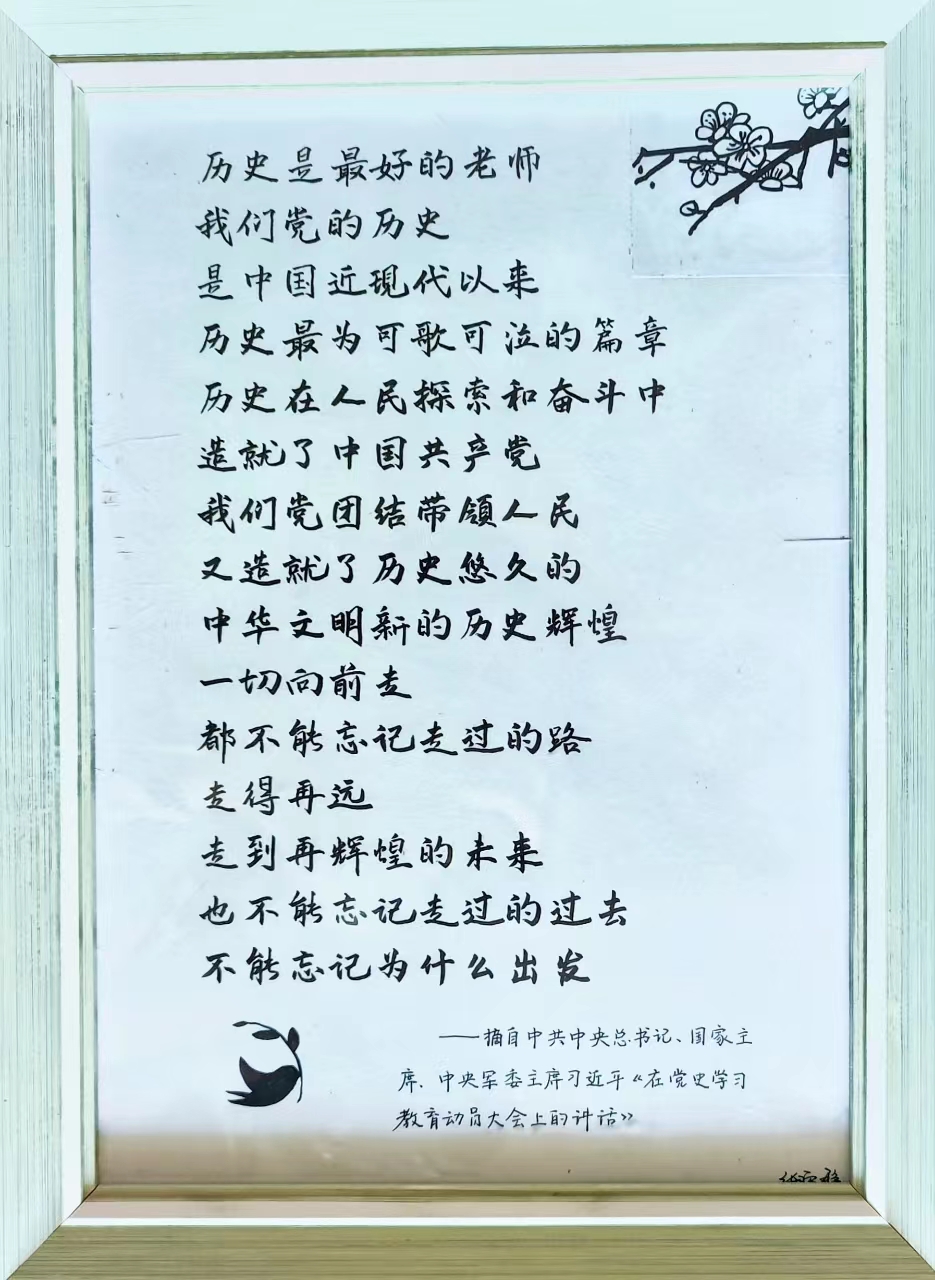 历史是最好的老师
我们党的历史
是中国近现代以来
历史最为可歌可泣的篇章
历史在人民探索和奋斗中
造就了中国共产党
我们党团结带领人民
又造就了历史悠久的
中华文明新的历史辉煌
一切向前走
都不能忘记走过的路
走得再远
走到再辉煌的未来
也不能忘记走过的过去
不能忘记为什么出发
——摘自中共中央总书记、国家主
席、中央军委主席习近平《在党史学习
教育动员大会上的讲话》